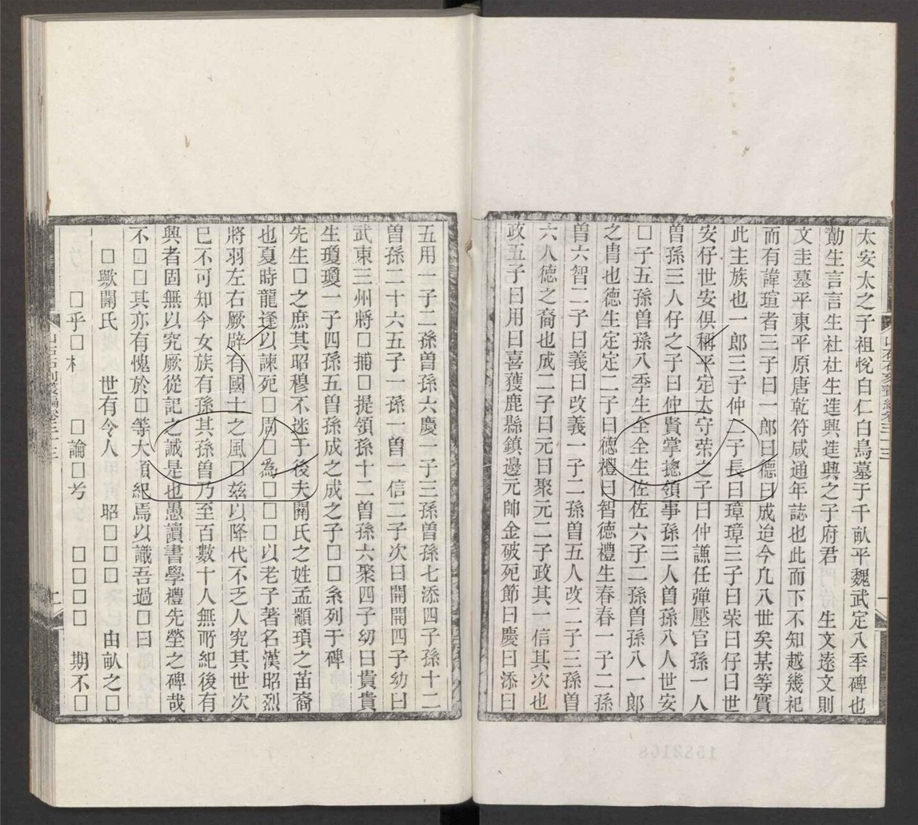 太安太之子祖悅白仁白鳥墓于千畝平魏武定八季碑也
勛生言言生社社生進興進興之子府君　生文遂文則
文圭墓平東平原唐乾符咸通年誌也此而下不知越幾祀
而有諱瑄者三子曰一郎曰德曰成迨今凣八世矣某等實
此主族也一郎三子仲二子長曰璋璋三子曰荣曰仔曰世
安仔世安俱稱平定太守荣之子曰仲謙任彈壓官孫一人
曾孫三人仔之子曰仲貴掌揔領事孫三人曾孫八人世安
□子五孫曾孫八季生全全生佐佐六子二孫曾孫八一郎
之胄也德生定定二子曰德禮曰智德禮生春春一子二孫
曾六智二子曰義曰改義一子二孫曾五人改二子三孫曾
六人德之裔也成二子曰元曰聚元二子政其一信其次也
政五子曰用曰喜獲鹿縣鎮邊元帥金破死節曰慶曰添曰
五用一子二孫曾孫六慶一子三孫曾孫七添四子孫十二
曾孫二十六五子一孫一曾一信二子次曰開開四子幼曰
武東三州將□捕□提領孫十二曾孫六聚四子幼曰貴貴
生瓊瓊一子四孫五曾孫成之成之子□□系列于碑
先生□之庶其昭穆不迷于後夫開氏之姓孟顓頊之苗裔
也夏時龍逢以諫死□周□為□□□以老子著名漢昭烈
將羽左右厥辟有國士之風□兹以降代不乏人究其世次
巳不可知今女族有孫其孫曾乃至百數十人無所紀後有
興者固無以究厥從記之誠是也愚讀書學禮先塋之碑哉
不□□其亦有愧於□等大頑紀焉以識吾過□曰
□歟開氏　世有令人　昭□□□　由畝之□
□乎□　□論□　□□□□　期不□